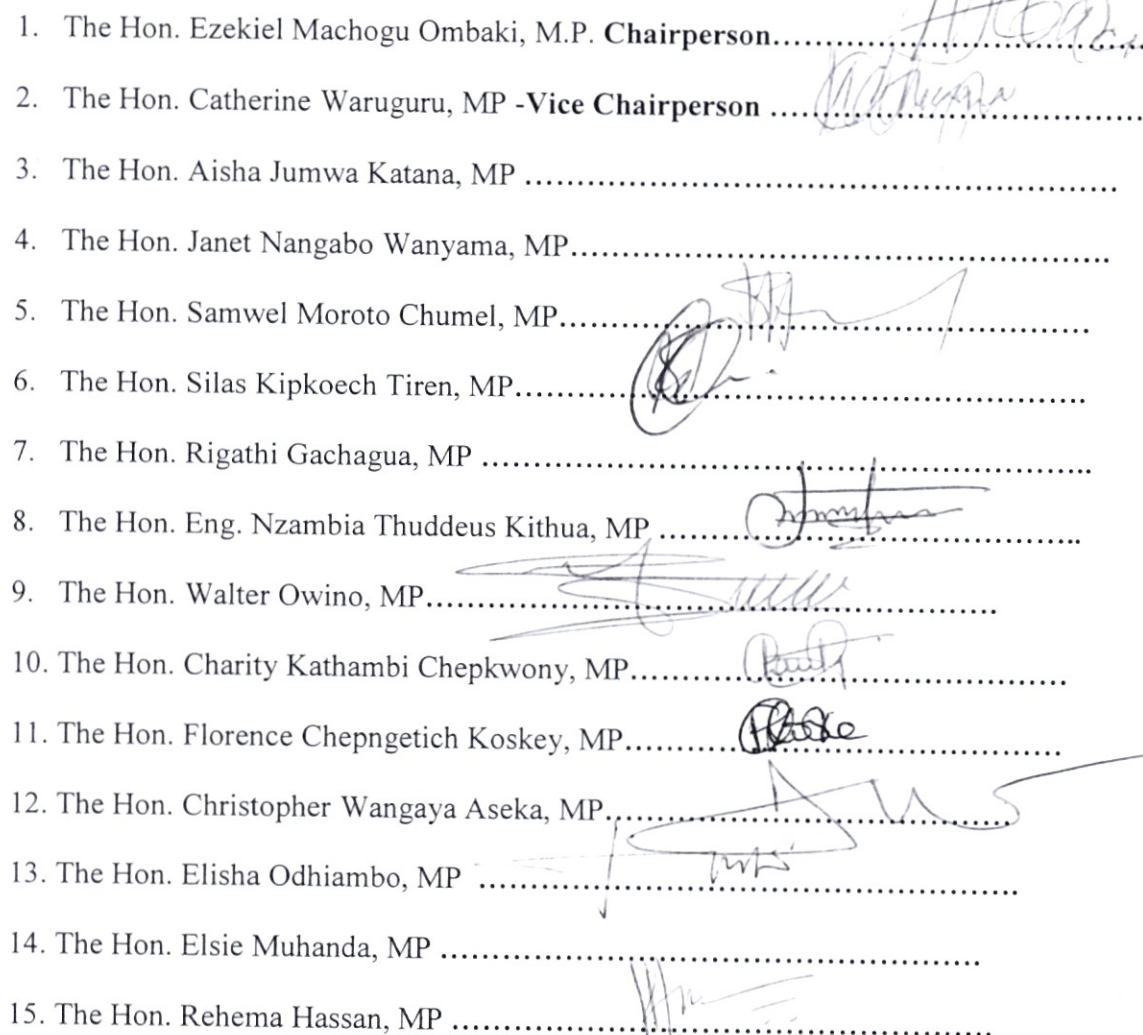 1. The Hon. Ezekiel Machogu Ombaki, M.P. Chairperson..........
2. The Hon. Catherine Waruguru, MP -Vice Chairperson ..........
3. The Hon. Aisha Jumwa Katana, MP ..........
4. The Hon. Janet Nangabo Wanyama, MP..........
5. The Hon. Samwel Moroto Chumel, MP..........
6. The Hon. Silas Kipkoech Tiren, MP..........
7. The Hon. Rigathi Gachagua, MP ..........
8. The Hon. Eng. Nzambia Thuddeus Kithua, MP ..........
9. The Hon. Walter Owino, MP..........
10. The Hon. Charity Kathambi Chepkwony, MP..........
11. The Hon. Florence Chepngetich Koskey, MP..........
12. The Hon. Christopher Wangaya Aseka, MP..........
13. The Hon. Elisha Odhiambo, MP ..........
14. The Hon. Elsie Muhanda, MP ..........
15. The Hon. Rehema Hassan, MP ..........